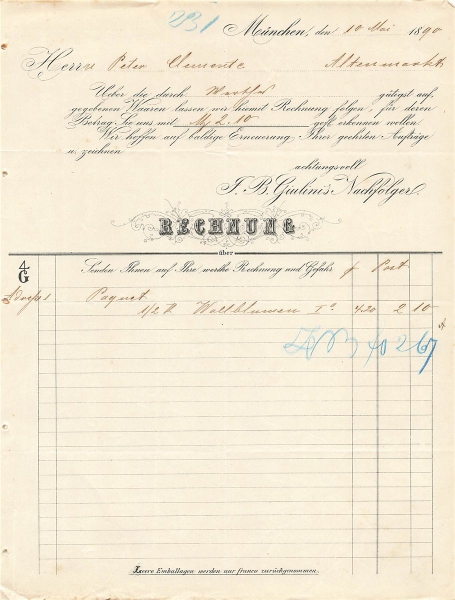 231
München, den 10 Mai 1890
Herrn Peter Clemente Altenmarkt
Ueber die durch gütigst auf-
gegebenen Waaren lassen wir hiemit Rechnung folgen, für deren
Betrag Sie uns mit M 2.10 gefl. erkennen wollen.
Wir hoffen auf baldige Erneuerung Ihrer geehrten Aufträge
u. zeichnen
achtungsvoll
J. B. Giulini's Nachfolger.
RECHNUNG
über
4/G Senden Ihnen auf Ihre werthe Rechnung und Gefahr p Post
1 Paquet
1/2 K Wollblumen Iª 4.20 2 10
Leere Emballagen werden nur franco zurückgenommen.